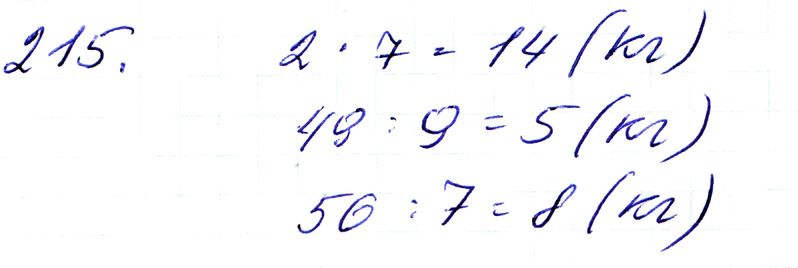 215. 2 · 7 = 14 (кг)
49 : 9 = 5 (кг)
56 : 7 = 8 (кг)